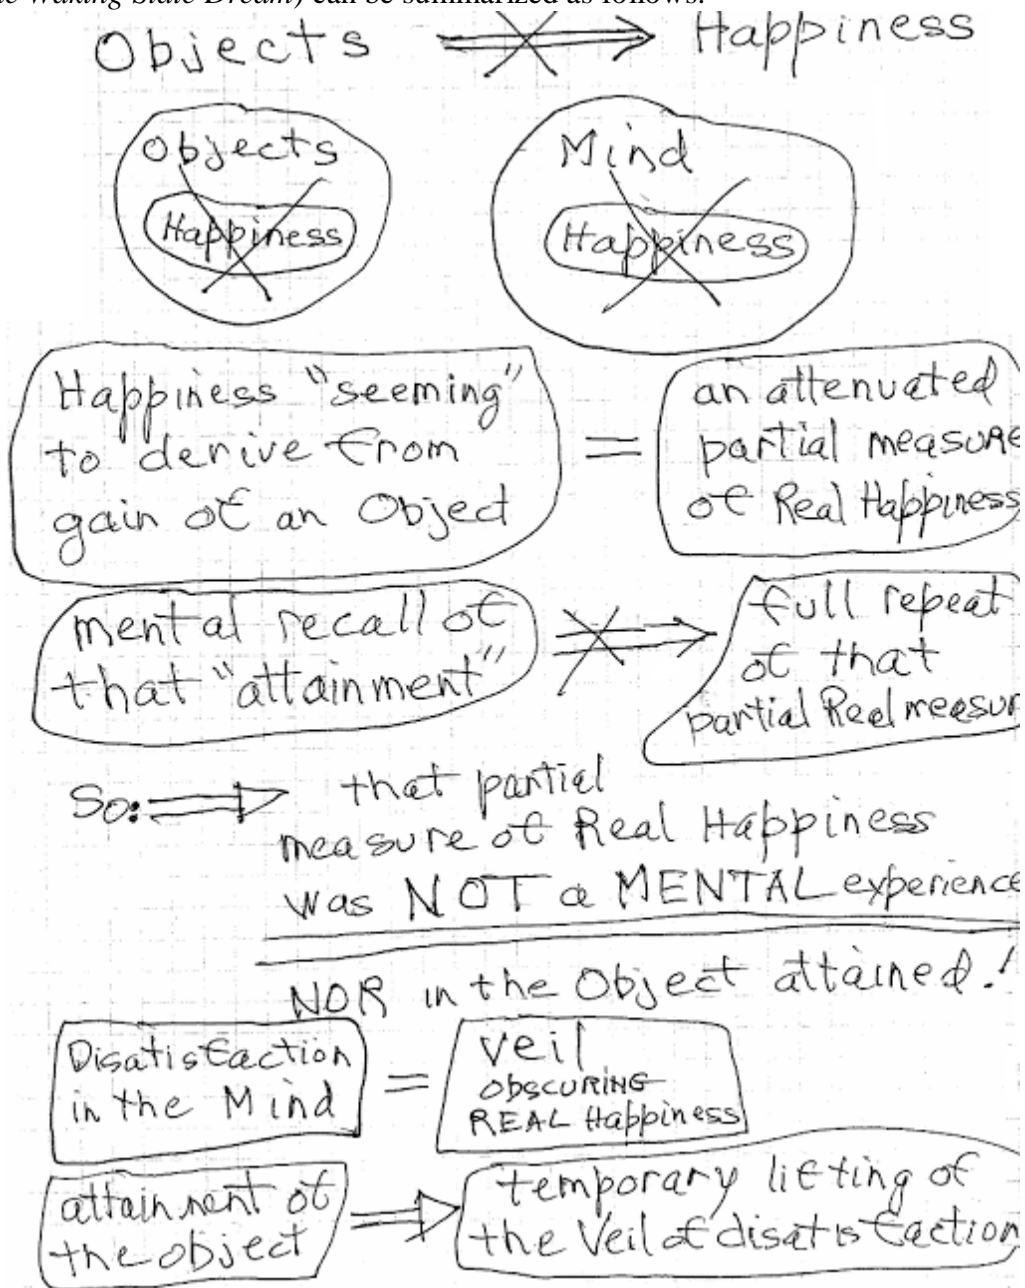 Waking State Dream) can be summarized as follows:
Objects Happiness
Objects Mind
Happiness Happiness
Happiness "seeming"
to derive from
gain of an Object
=
an attenuated
partial measure
of Real Happiness
mental recall of
that "attainment"
full repeat
of that
partial Real measur
So: that partial
measure of Real Happiness
was NOT a MENTAL experience
NOR in the Object attained!
Disatisfaction
in the Mind
=
Veil
OBSCURING
REAL Happiness
attainment of
the object
temporary lifting of
the Veil of disatisfaction